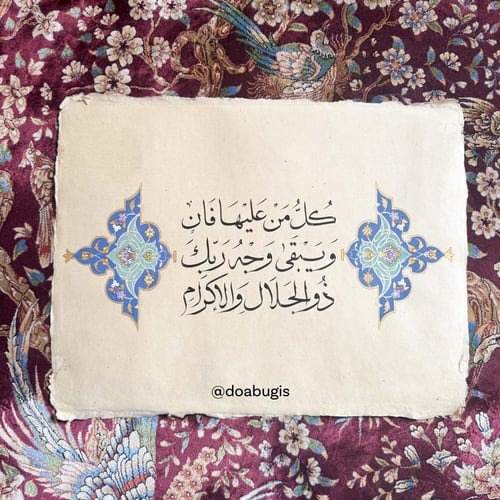 كُلُّ مَنْ عَلَيْهَا فَانٍ
وَيَبْقَىٰ وَجْهُ رَبِّكَ
ذُو الْجَلَالِ وَالْإِكْرَامِ
@doabugis